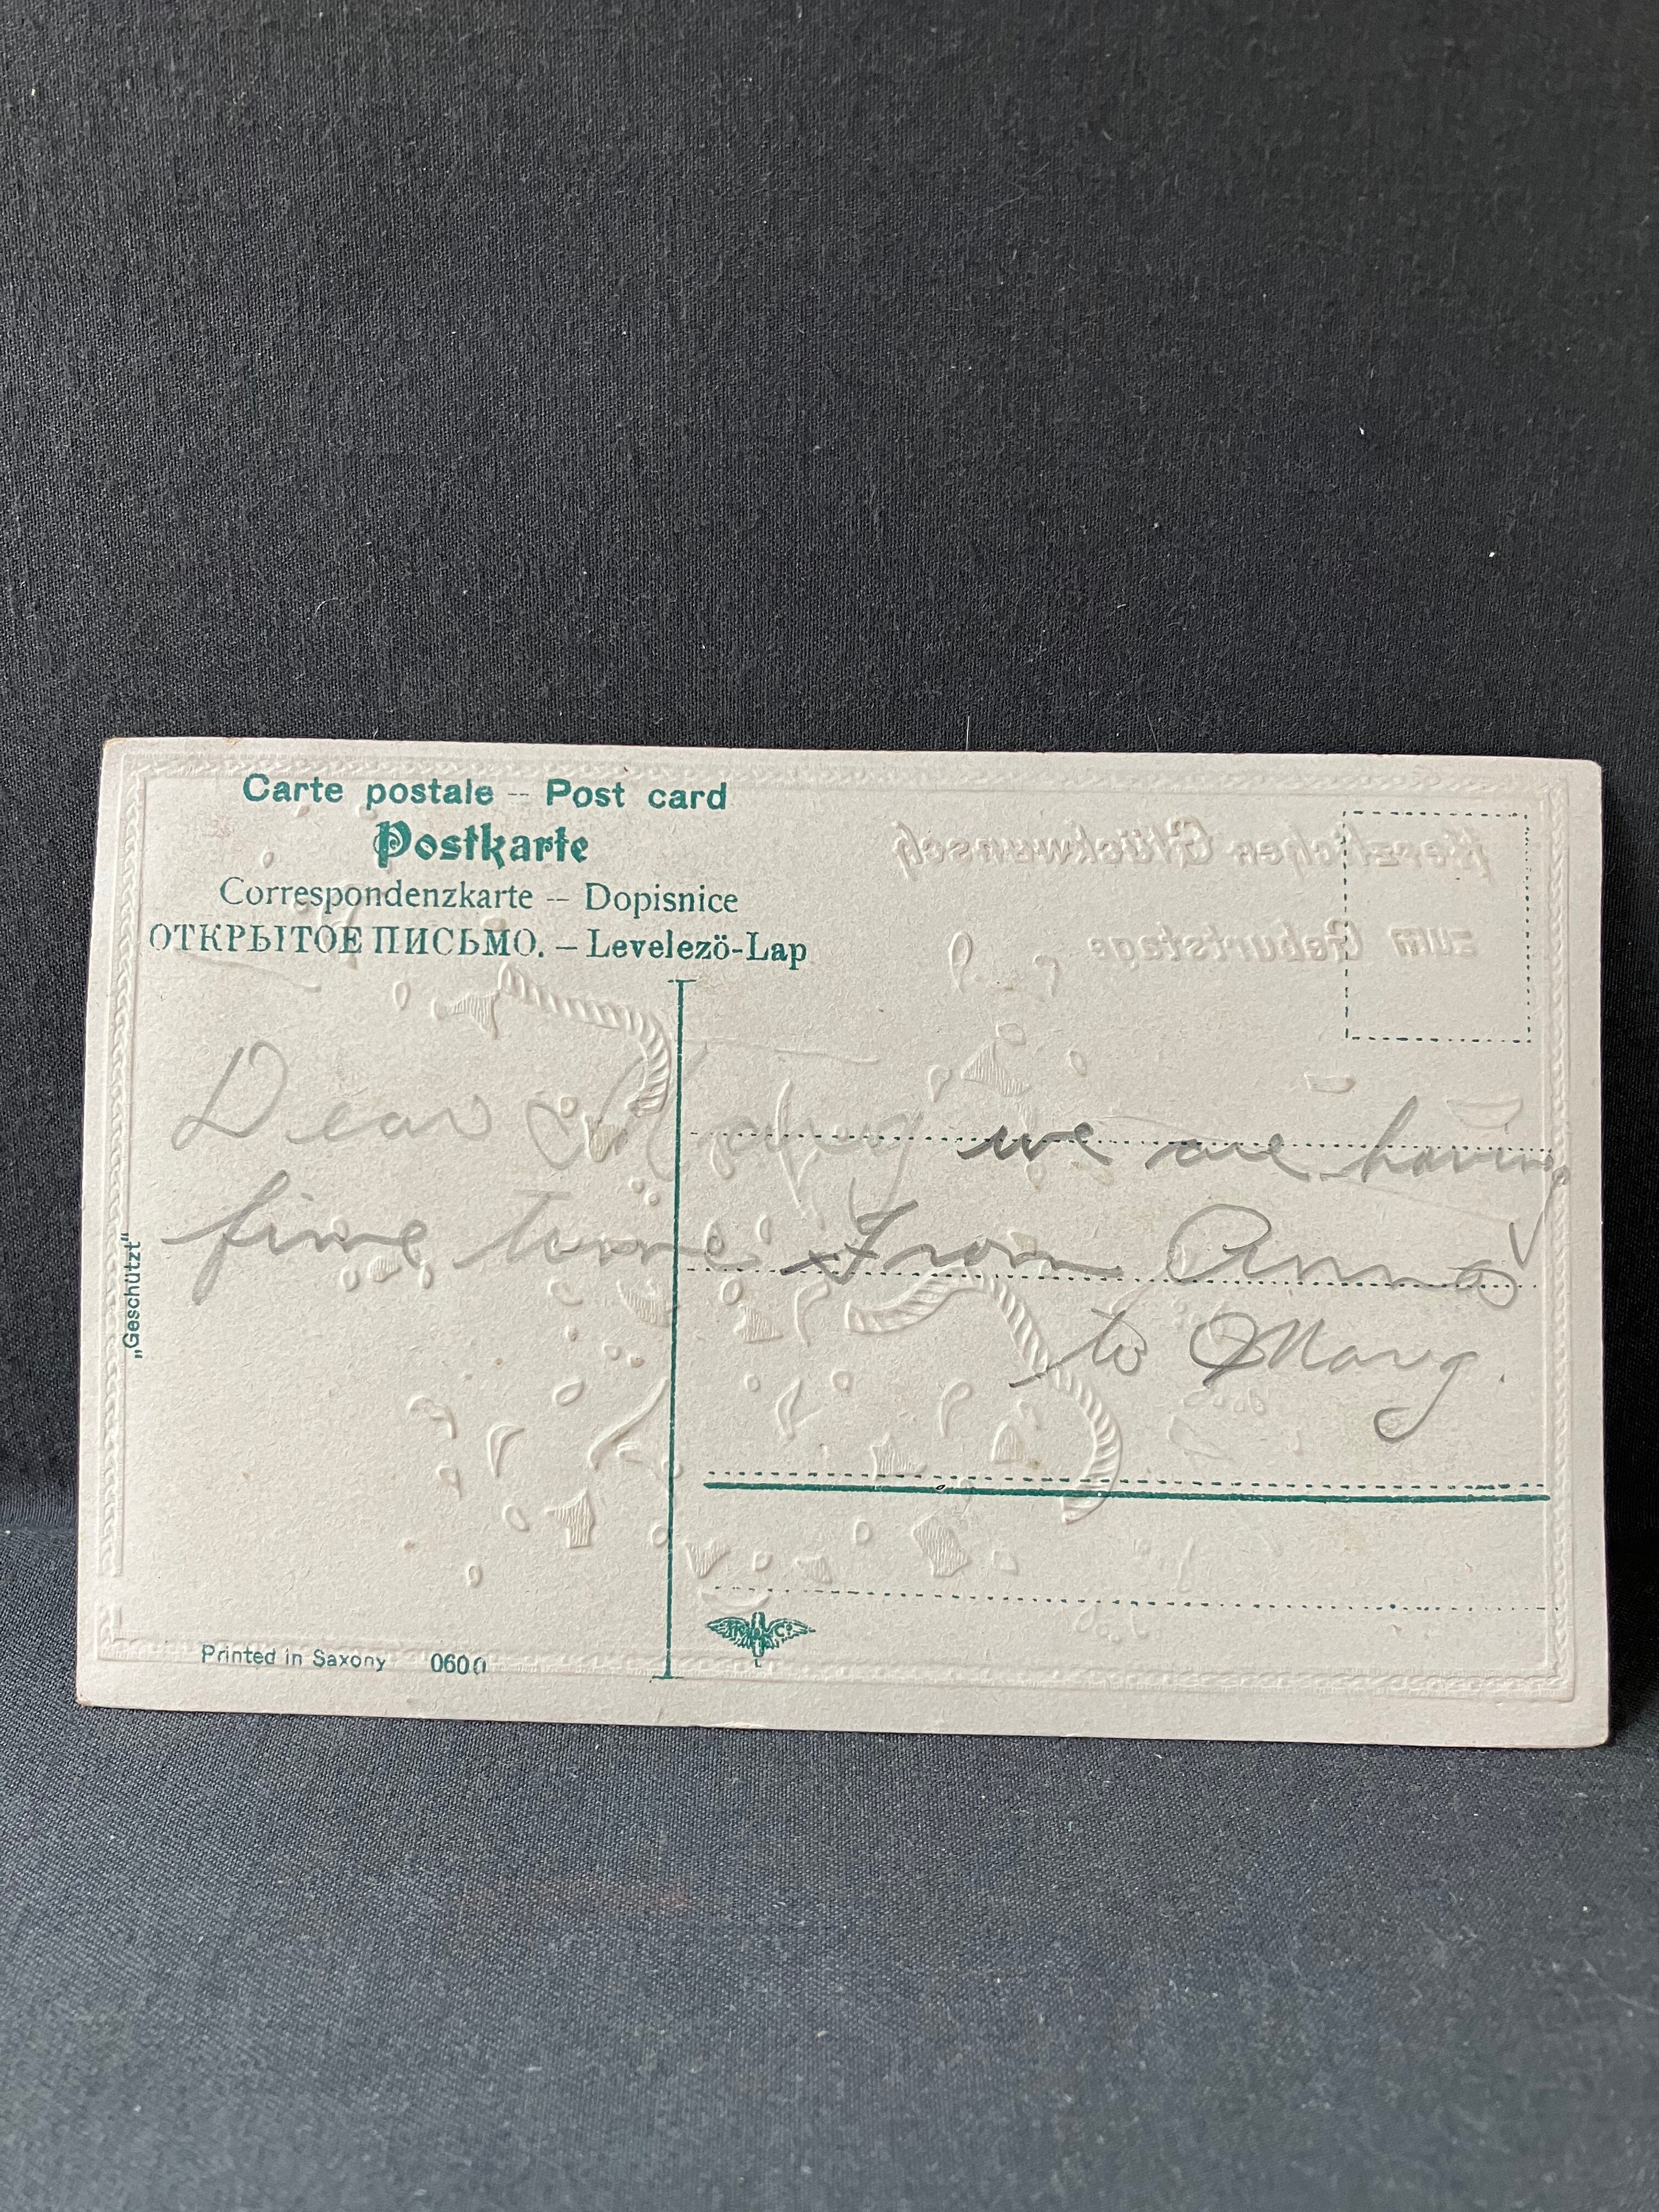 Carte postale -- Post card
Postkarte
Correspondenzkarte -- Dopisnice
ОТКРЫТОЕ ПИСЬМО. – Levelezö-Lap
Herzlichen Glückwunsch
zum Geburtstage
Dear we are having
fine time From Anna
to Marg
„Geschützt"
Printed in Saxony 0600